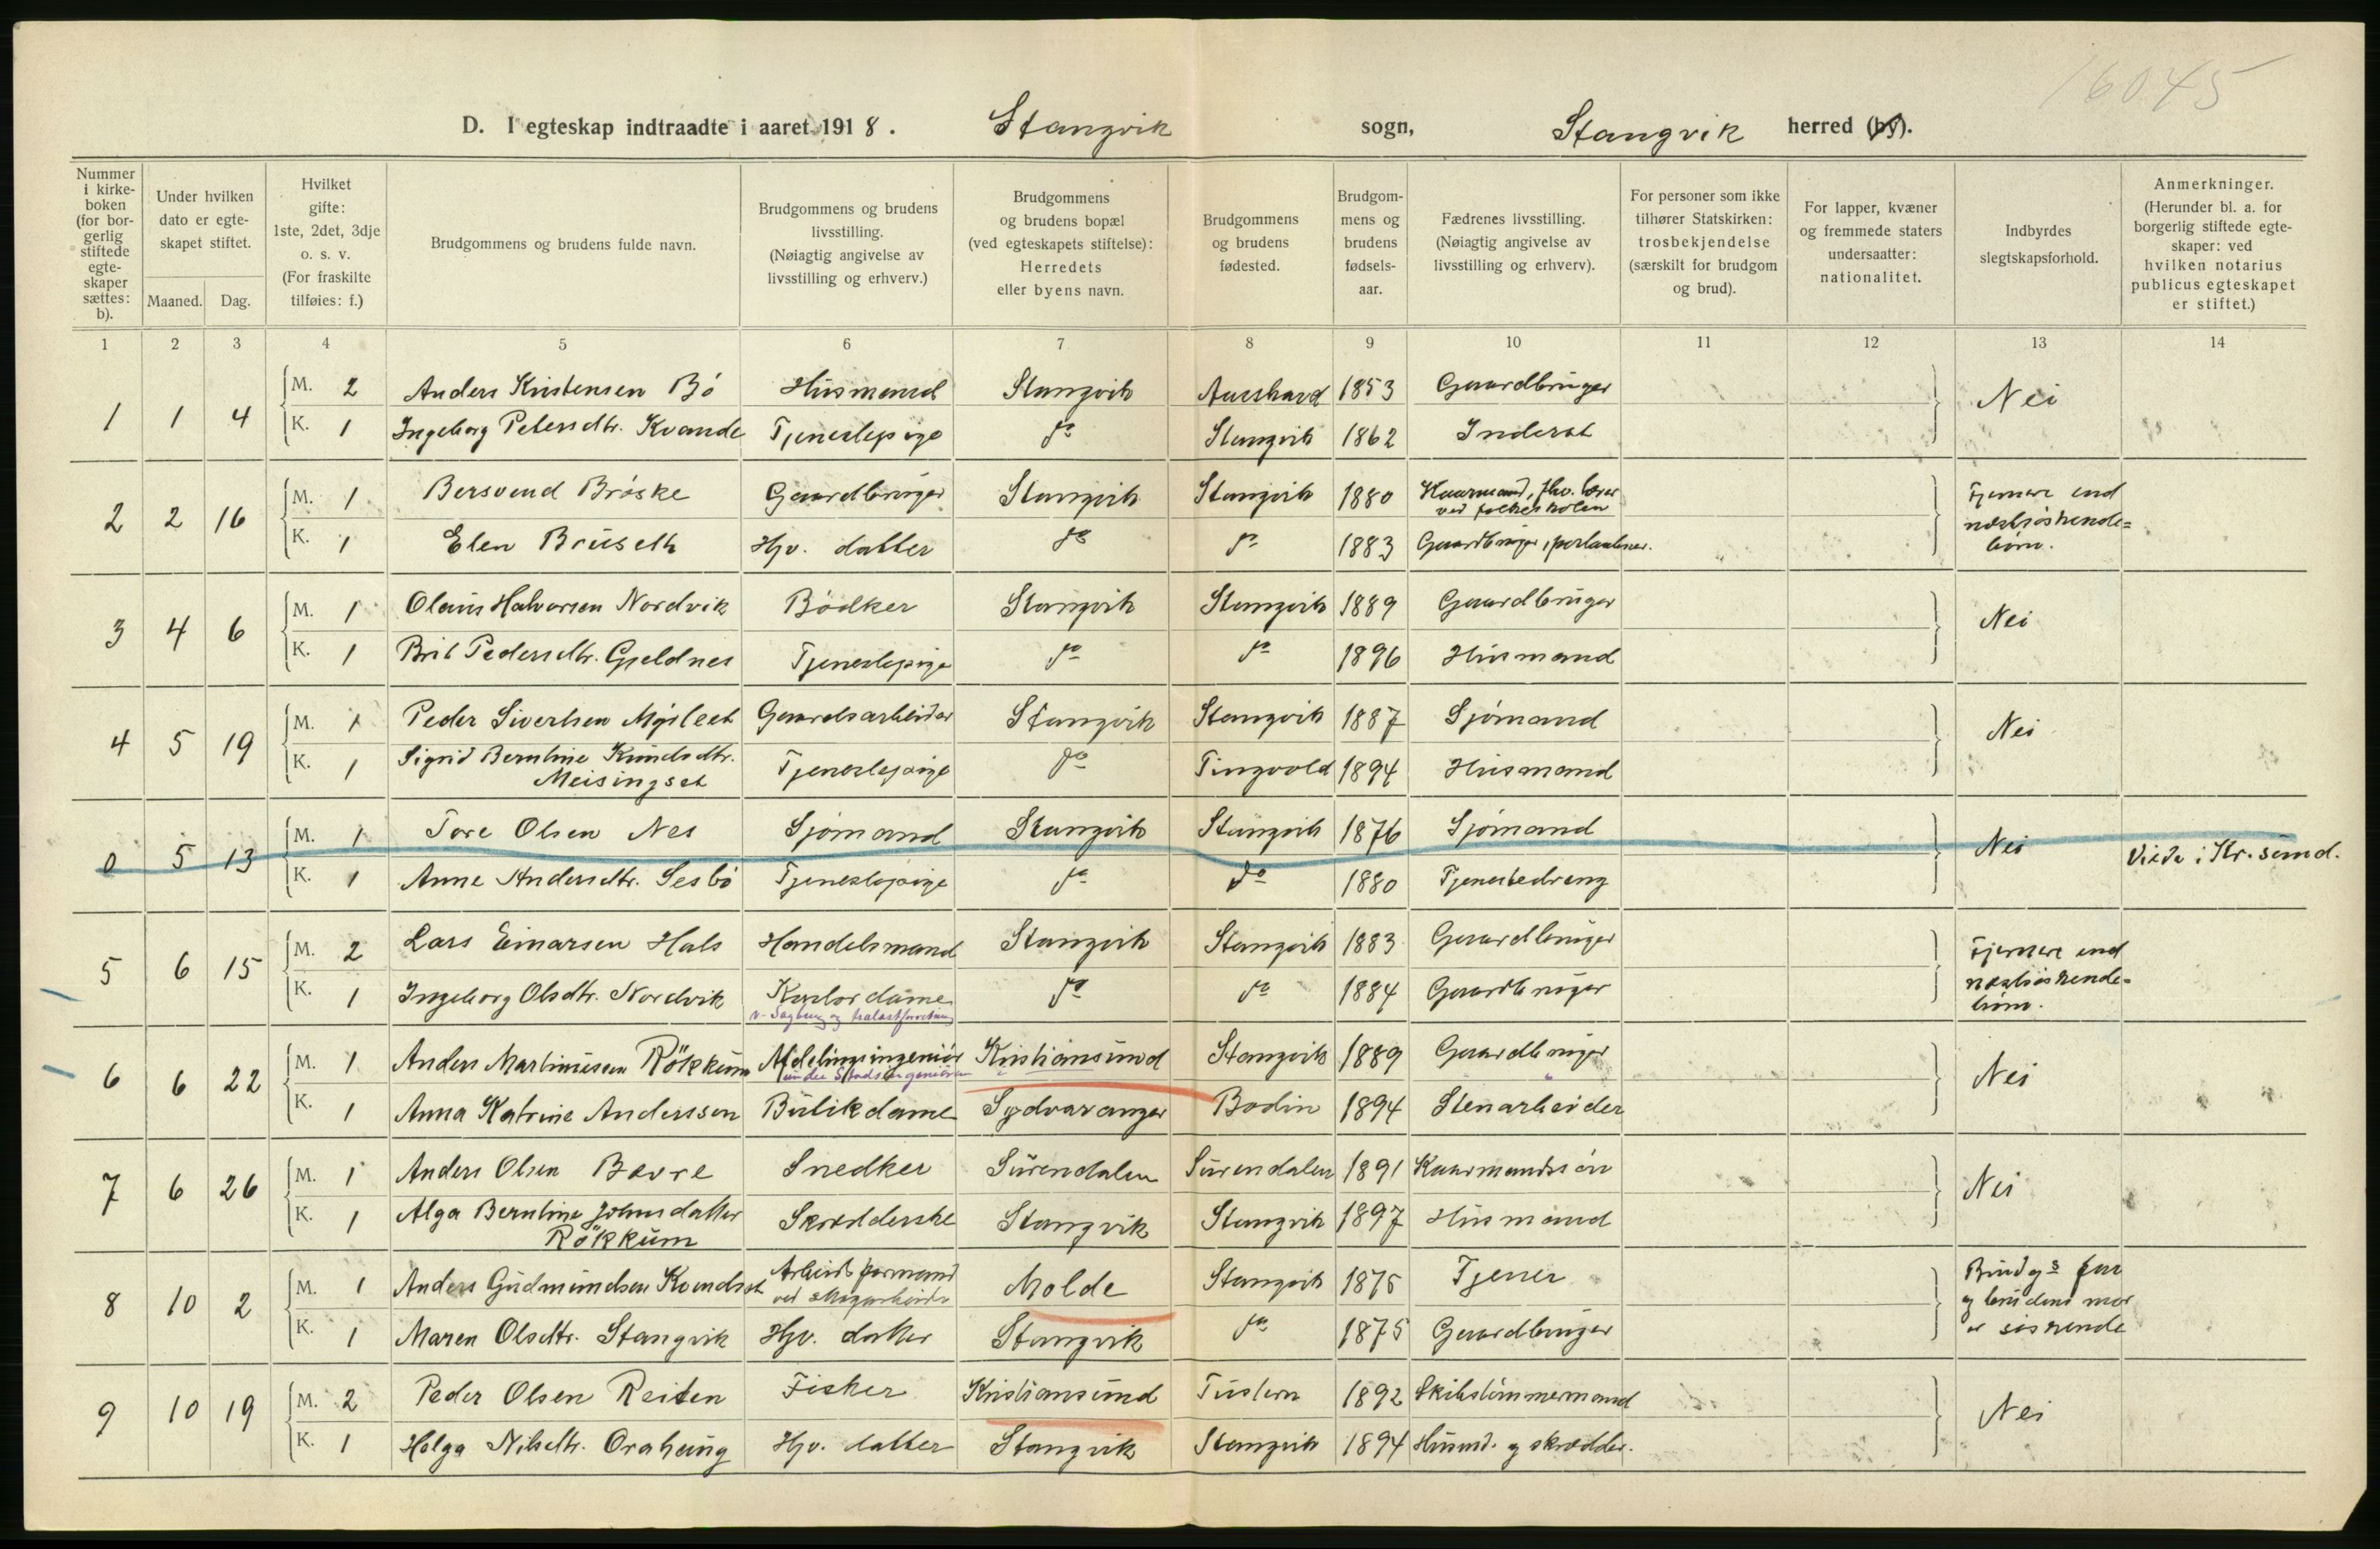 16045
D. I egteskap indtraadte i aaret 1918. Stangvik sogn, Stangvik herred (by).
Nummer i kirkeboken (for borgerlig stiftede egteskaper sættes: b).
Under hvilken dato er egteskapet stiftet.
Maaned. Dag.
Hvilket gifte: 1ste, 2det, 3dje o. s. v. (For fraskilte tilføies: f.)
Brudgommens og brudens fulde navn.
Brudgommens og brudens livsstilling. (Nøiagtig angivelse av livsstilling og erhverv.)
Brudgommens og brudens bopæl (ved egteskapets stiftelse): Herredets eller byens navn.
Brudgommens og brudens fødested.
Brudgommens og brudens fødselsaar.
Fædrenes livsstilling. (Nøiagtig angivelse av livsstilling og erhverv).
For personer som ikke tilhører Statskirken: trosbekjendelse (særskilt for brudgom og brud).
For lapper, kvæner og fremmede staters undersaatter: nationalitet.
Indbyrdes slegtskapsforhold.
Anmerkninger. (Herunder bl. a. for borgerlig stiftede egteskaper: ved hvilken notarius publicus egteskapet er stiftet.)
1 2 3 4 5 6 7 8 9 10 11 12 13 14
1 1 4 M. 2 Anders Kristensen Bö Husmand Stangvik Aurskard 1853 Gaardbruger Nei
K. 1 Ingeborg Petersdtr. Kvande Tjenestepige do Stangvik 1862 Inderst
2 2 16 M. 1 Bersvend Bröske Gaardbruger Stangvik Stangvik 1880 Kaarmand, fhv. lærer ved folkeskolen Fjernere end næstsöskendebörn.
K. 1 Elen Brüseth Hjv. datter do do 1883 Gaardbruger,
3 4 6 M. 1 Olaus Halvorsen Nordvik Bödker Stangvik Stangvik 1889 Gaardbruger Nei
K. 1 Brit Pedersdtr. Gjeldnes Tjenestepige do do 1896 Husmand
4 5 19 M. 1 Peder Sivertsen Myslet Gaardsarbeider Stangvik Stangvik 1887 Sjömand Nei
K. 1 Sigrid Berntine Knudsdtr. Meisingset Tjenestepige do Tingvold 1894 Husmand
0 5 13 M. 1 Tore Olsen Nes Sjömand Stangvik Stangvik 1876 Sjömand Nei Viede i Kr.sund.
K. 1 Anne Andersdtr. Sesbö Tjenestepige do do 1880 Tjenestedreng
5 6 15 M. 2 Lars Einarsen Hals Handelsmand Stangvik Stangvik 1883 Gaardbruger Fjernere end næstsöskendebörn.
K. 1 Ingeborg Olsdtr. Nordvik Kontordame do do 1884 Gaardbruger
v. Sagbrug og trælastforretning
6 6 22 M. 1 Anders Martinussen Rökkum Afdelingsingeniör Kristiansund Stangvik 1889 Gaardbruger Nei
under Stadsingeniören
K. 1 Anna Katrine Anderssen Butikdame Sydvaranger Bodin 1894 Stenarbeider
7 6 26 M. 1 Anders Olsen Bævre Snedker Surendalen Surendalen 1891 Kaarmandssön Nei
K. 1 Alga Berntine Johnsdatter Rökkum Skrædderske Stangvik Stangvik 1897 Husmand
8 10 2 M. 1 Anders Gudmundsen Kvendset Arbeidsformand ved skogarbeide Molde Stangvik 1875 Tjener Brudgs far og brudens mor er söskende
K. 1 Maren Olsdtr. Stangvik Hjv. datter Stangvik do 1875 Gaardbruger
9 10 19 M. 2 Peder Olsen Reiten Fisker Kristiansund Tustern 1892 Skibstömmermand Nei
K. 1 Helga Nilsdtr. Orahaug Hjv. datter Stangvik Stangvik 1894 Husmd. og skrædder.